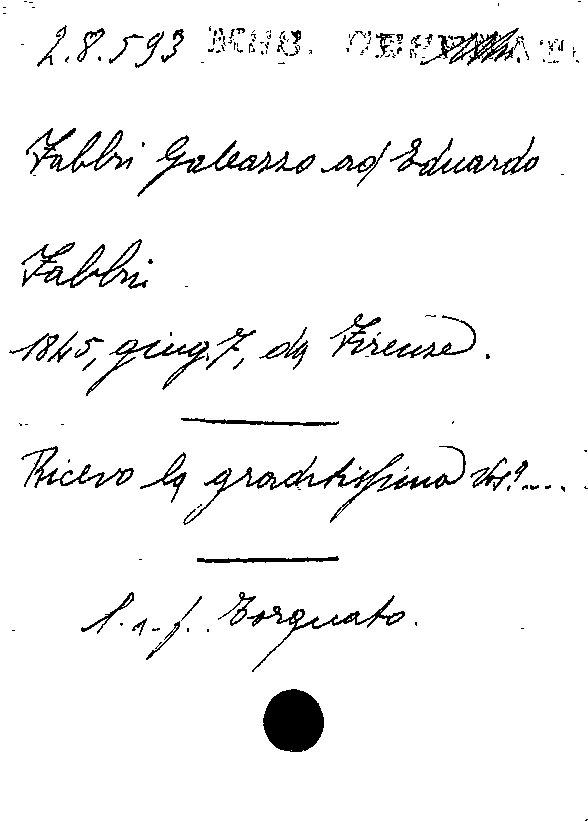 2.8.593
Fabbri Galeazzo ad Eduardo
Fabbri
1845, giug. 7, da Firenze.
Ricevo la graditissima Vos.ª....
l. a. f. Torquato.